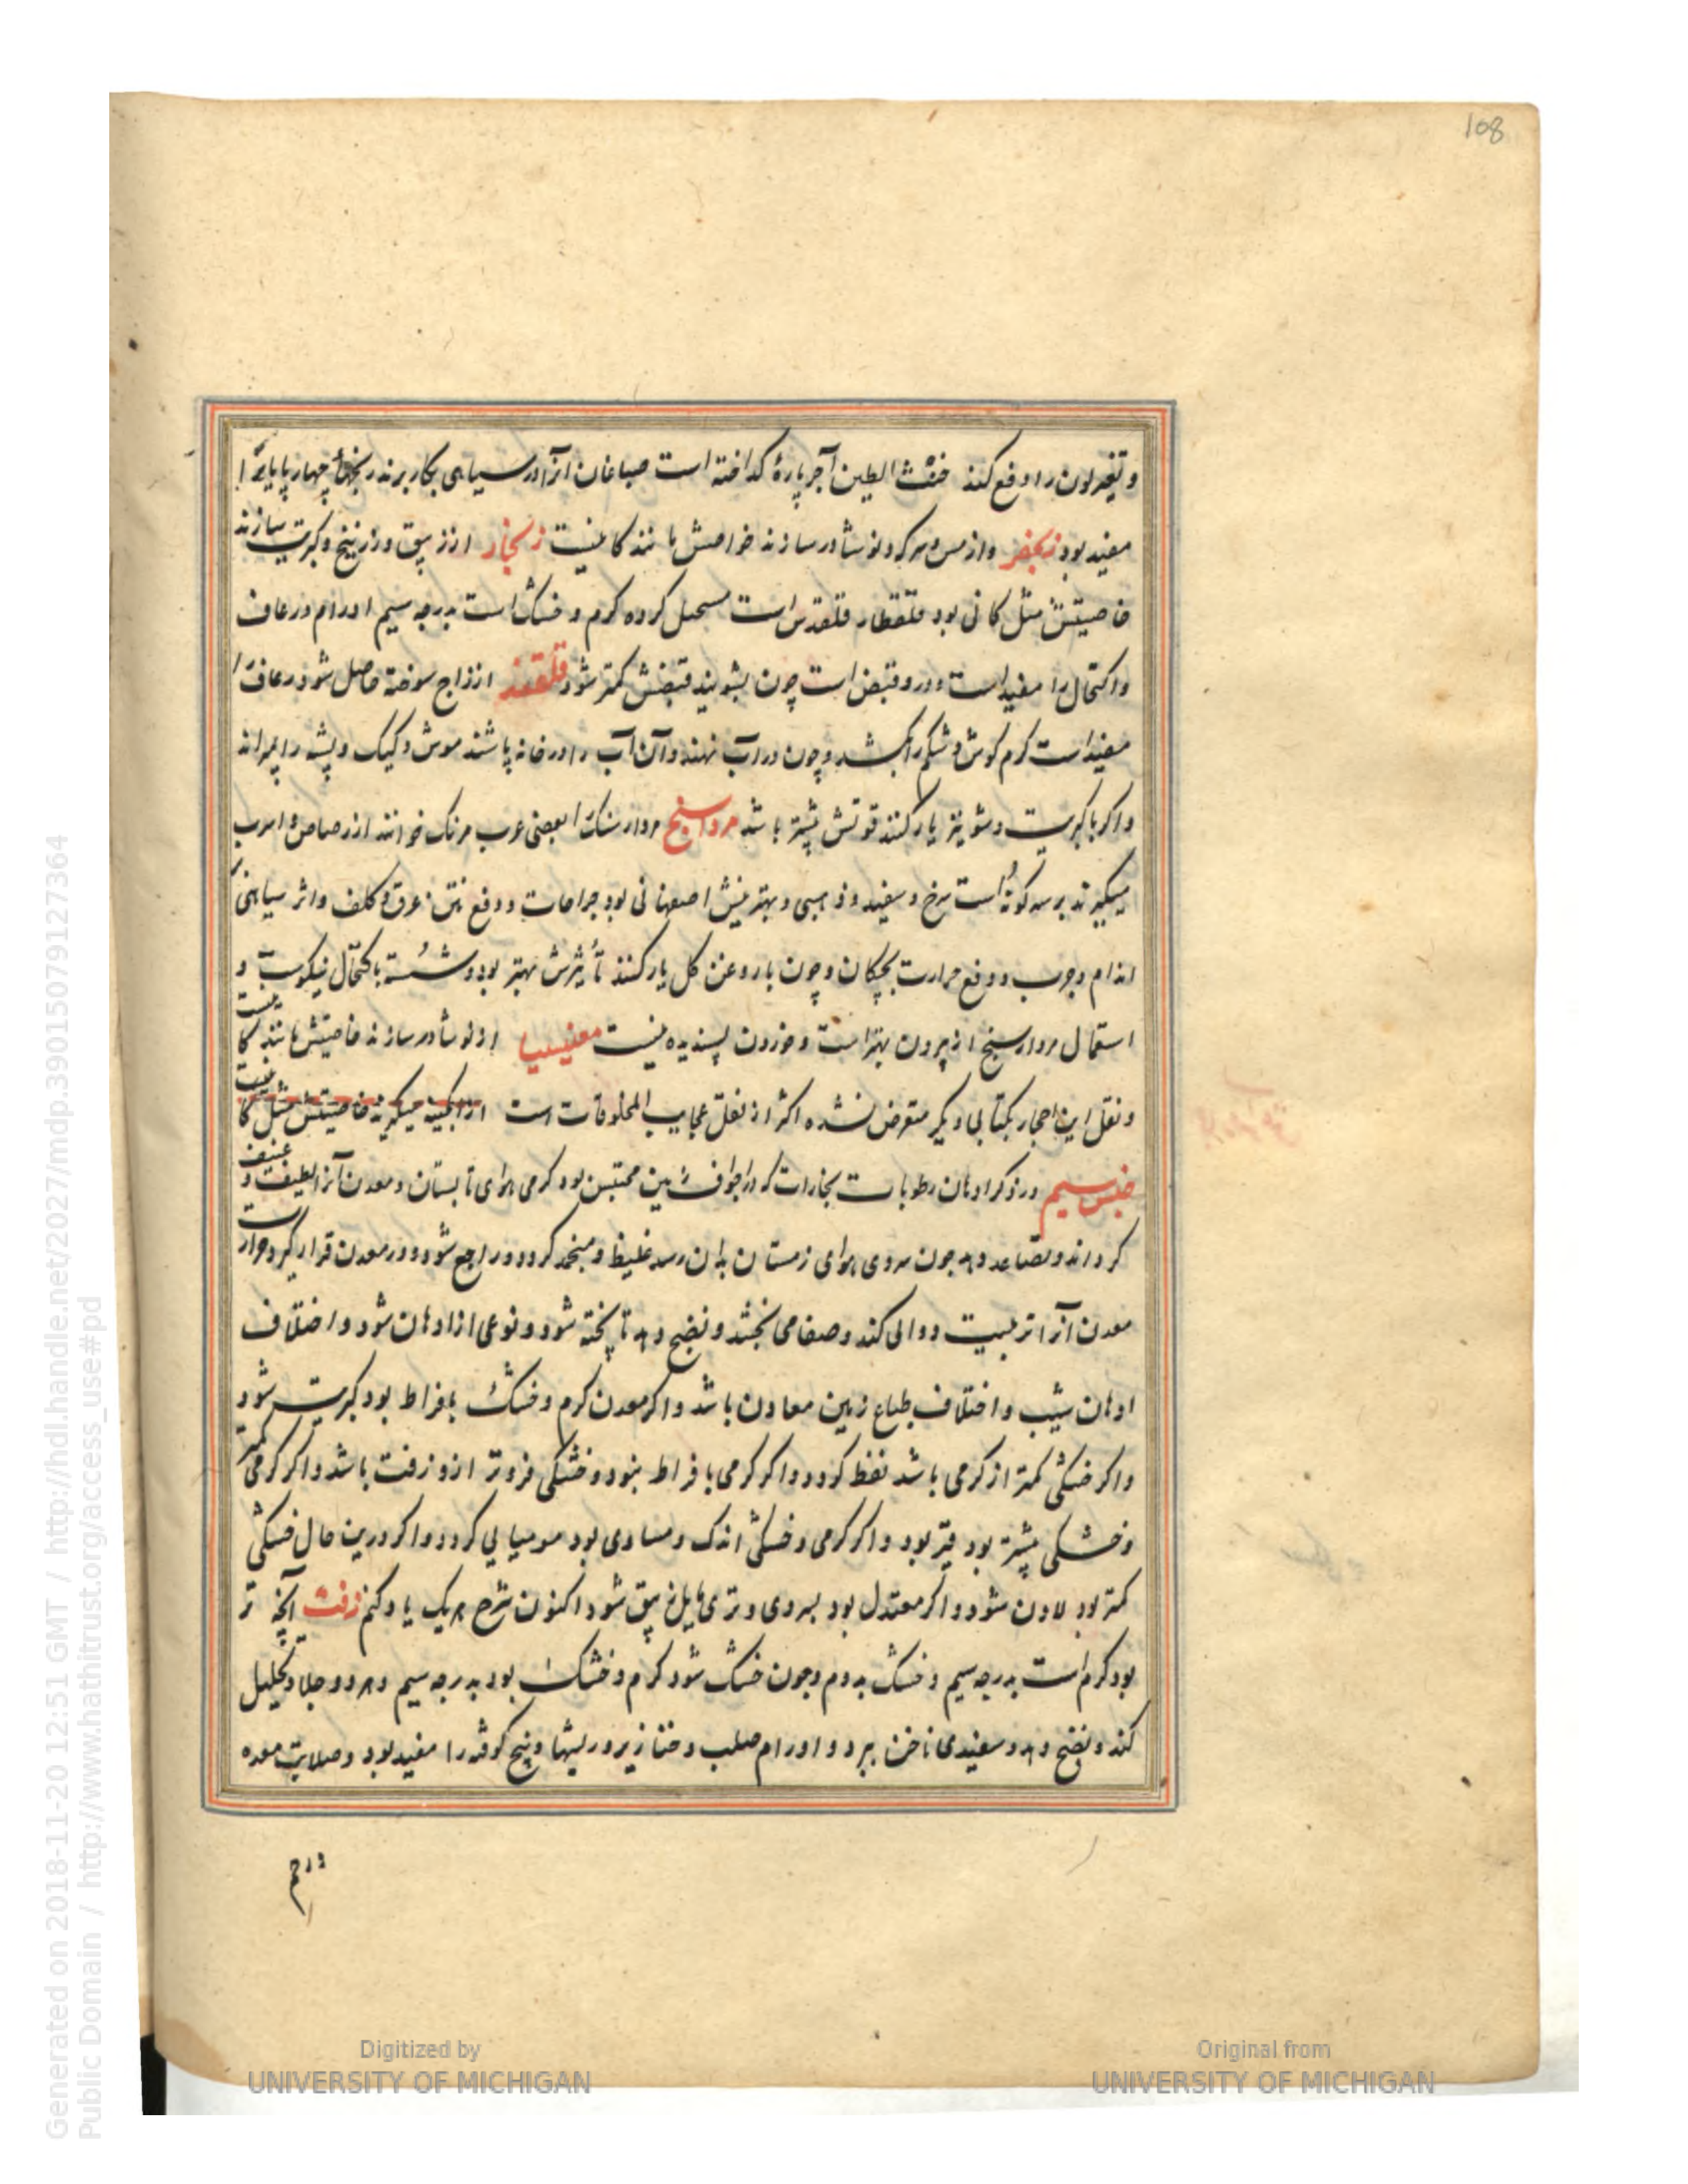 108
وتغیر لون را دفع کند خبث الطین آجر پارهٔ کداخته است صباغان آنرا در سیاهی بکار برند ریشهای چهارپایانرا
مفید بود زنجفر واز مس و سرکه ونوشادر سازند خواصش مانند کانیست زنجار از زیبق وزرنیخ وکبریت سازند
خاصیتش مثل کانی بود قلقطار قلقدس است مستحیل کرده کرم و خشک است بدرجه سیم اورام ورعاف
واکتحال را مفید است ودرو قبض است چون بشویند قبضش کمتر شود قلقند از زاج سوخته حاصل شود رعاف را
مفید است کرم کوش و شکم را بکشد وچون در آب نهند وآن آب را در خانه پاشند موش و کیک و پشه را بپراند
واکر با کبریت وشونیز یار کنند قوتش بیشتر باشد مرداسنج مردار سنک را بعضی عرب مرتک خوانند از رصاص و اسرب
میکیرند بر سه کونه است سرخ و سفید و ذهبی و بهترینش اصفهانی بود جراحات ودفع نتن عرق و کلف واثر سیاهی
اندام وجرب ودفع حرارت بچکان وچون با روغن کل یار کنند تأثیرش بهتر بود وشسته باکتحال نیکوست و
استعمال مردارسنج از بیرون بهتر است وخوردن پسندیده نیست مغنیسیا از نوشادر سازند خاصیتش مانند کانیست
ونقل این احجار بکتابی دیکر متعرض نشده اکثر از نقل عجایب المخلوقات است از آبکینه میکیرند خاصیتش مثل کانیست
جنس سیم در ذکر ادهان رطوبات بخارات که در اجواف زمین محتبس بود کرمی هوای تابستان ومعدن آنرا لطیف و عنیف
کرداند وتصاعد دهد چون سردی هوای زمستان بدان رسد غلیظ ومنجمد کردد وراجع شود ودر معدن قرار کیرد وحرارت
معدن آنرا تربیت ووالی کند وصفا می بخشد ونضج دهد تا پخته شود ونوعی از ادهان شود واختلاف
ادهان بسبب واختلاف طباع زمین معادن باشد واکر معدن کرم وخشک بافراط بود کبریت شود
واکر خشکی کمتر از کرمی باشد نفط کردد واکر کرمی بافراط نبود وخشکی فزونتر ازو زفت باشد واکر کرمی کمتر
وخشکی بیشتر بود قیر بود واکر کرمی وخشکی اندک ومساوی بود مومیایی کردد واکر درین حال خشکی
کمتر بود لادن شود واکر معتدل بود بسردی وتری مایل زیبق شود اکنون شرح هر یک یاد کنم زفت آنچه تر
بود کرم است بدرجه سیم وخشک بدوم وچون خشک شود کرم وخشک بود بدرجه سیم وهر دو جلا وتحلیل
کند ونضج دهد وسفیدی ناخن ببرد واورام صلب وخنازیر وریشها وپنج کوفته را مفید بود وصلابت معده